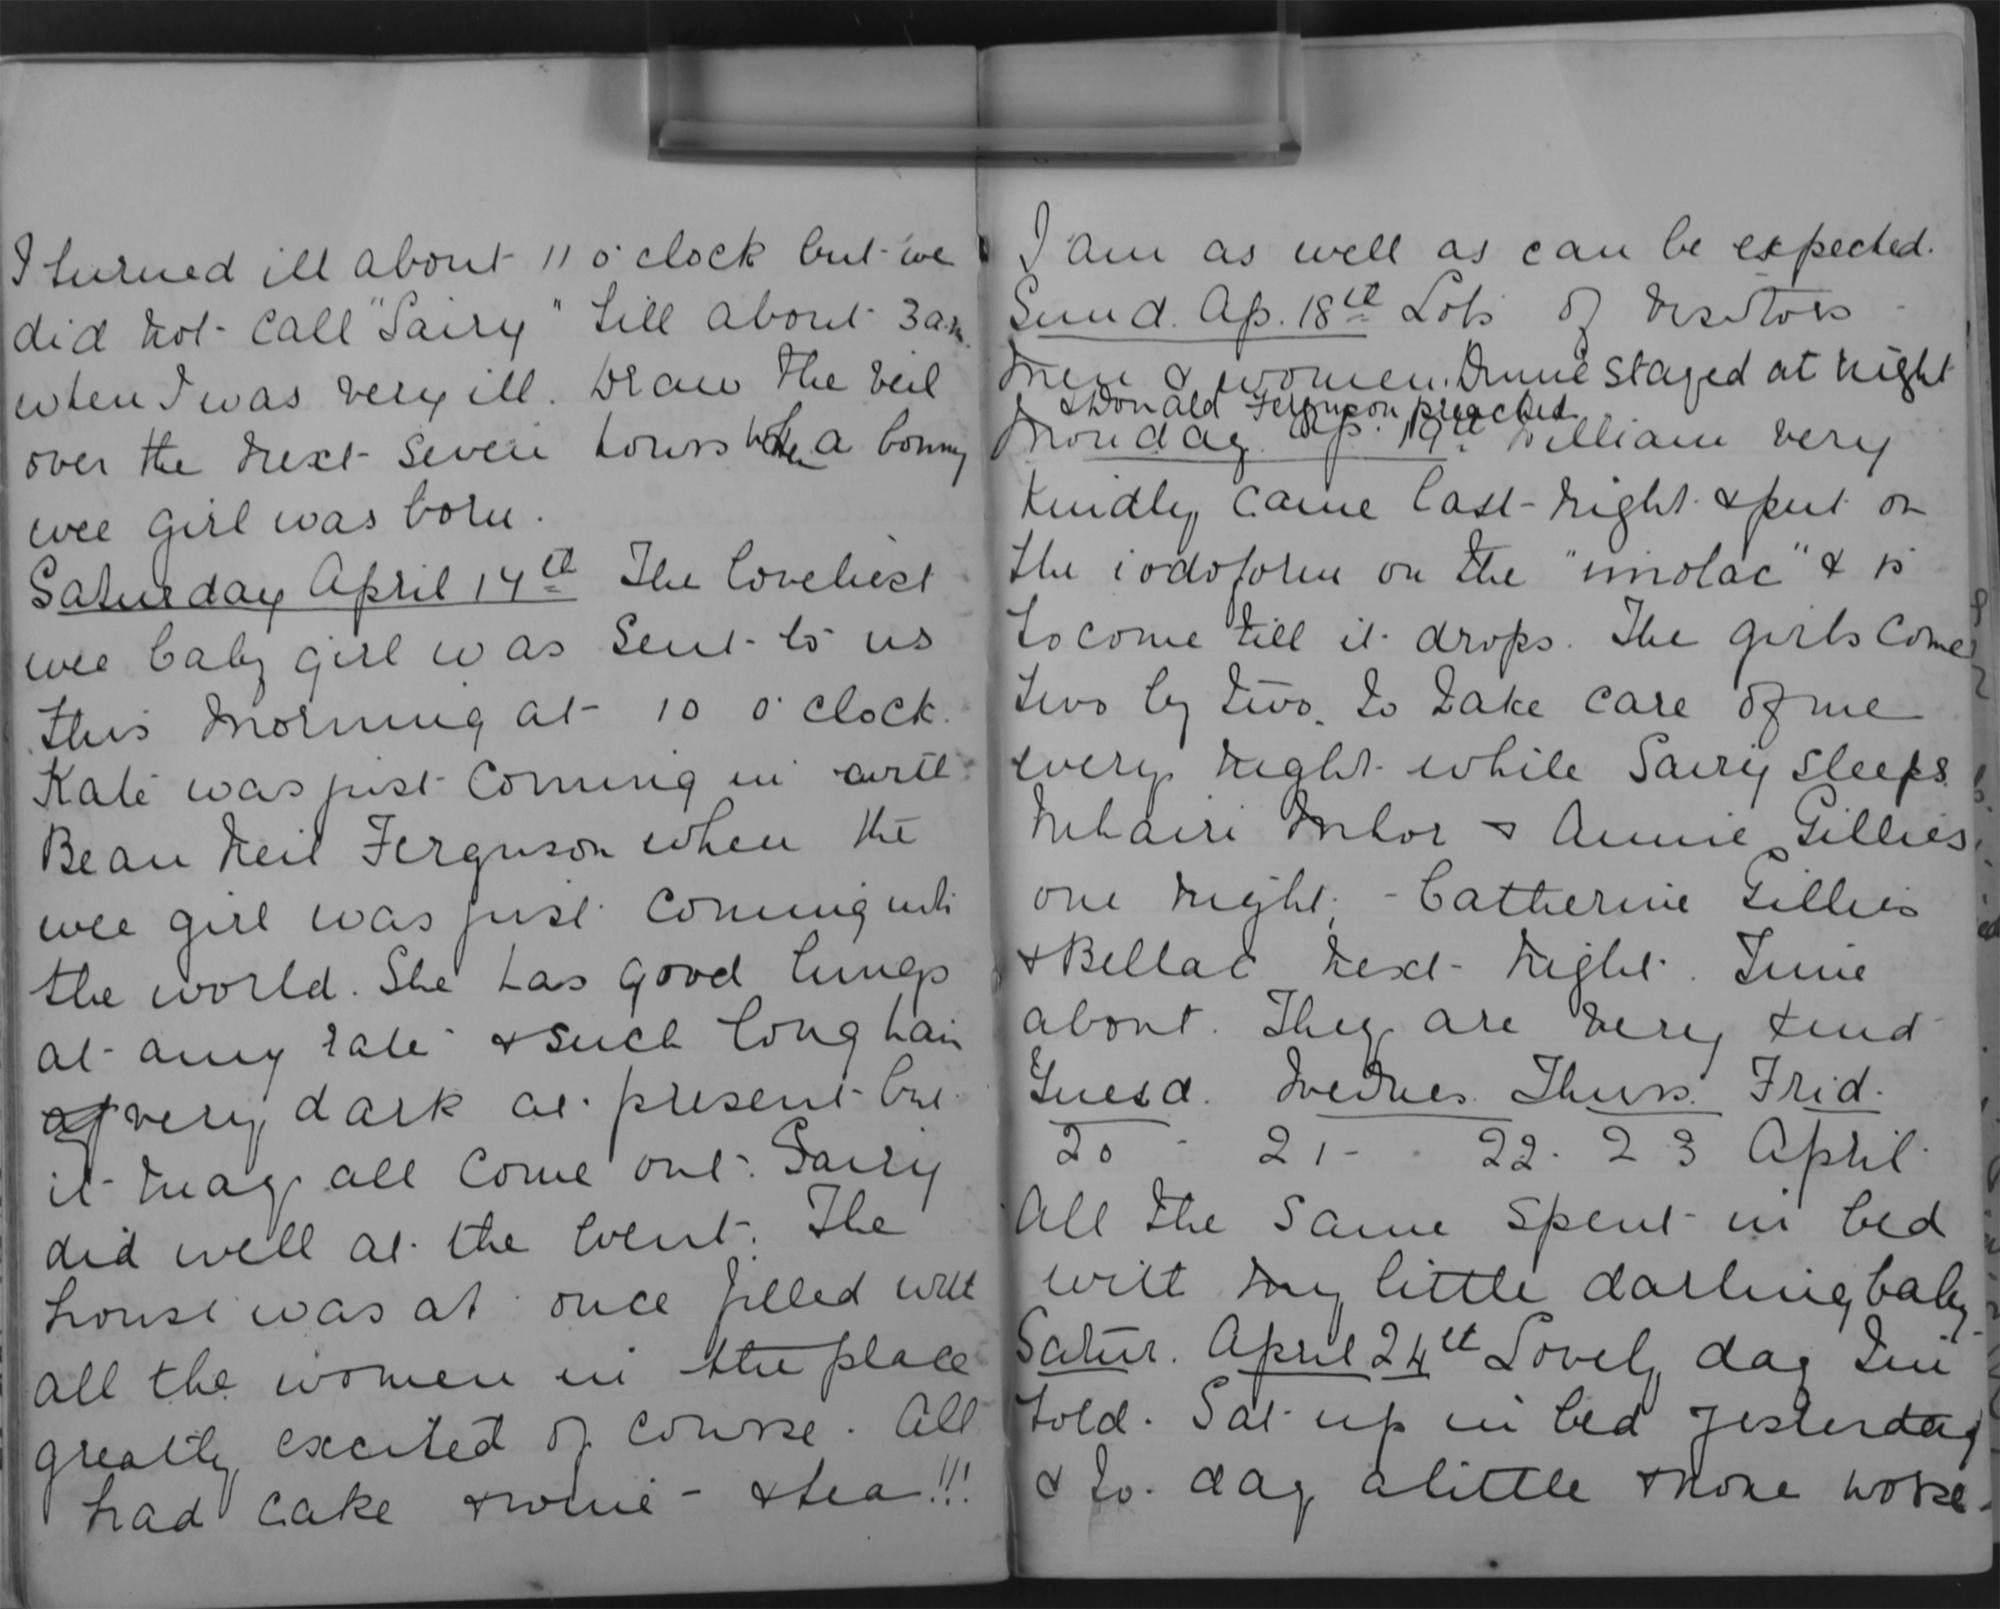 I turned ill about 11 o'clock but we
did not call "Sairy" till about 3 a.m.
when I was very ill. Draw the veil
over the next seven hours when a bonny
wee girl was born.
Saturday April 17th The loveliest
wee baby girl was sent to us
this morning at 10 o'clock.
Kate was just coming in with
Bean Neil Ferguson when the
wee girl was just coming into
the world. She has good lungs
at any rate & such long hair
very dark at present but
it may all come out. Sairy
did well at the event. The
house was at once filled with
all the women in the place
greatly excited of course. All
had cake & wine - & tea!!!
I am as well as can be expected.
Sund. Ap. 18th Lots of visitors
men & women. Dunie stayed at night
& Donald Ferguson preached
Monday Ap. 19th William very
kindly came last night & put on
the iodoform on the "imolac" & is
to come till it drops. The girls come
two by two to take care of me
every night while Sairy sleeps
Mhairi Mhor & Annie Gillies
one night, - Catherine Gillies
& Bellac next night. Time
about. They are very kind
Tuesd. Wednes. Thurs. Frid.
20 - 21 - 22. 23 April
All the same spent in bed
with my little darling baby
Satur. April 24th Lovely day I'm
told. Sat up in bed yesterday
& to-day a little & none worse